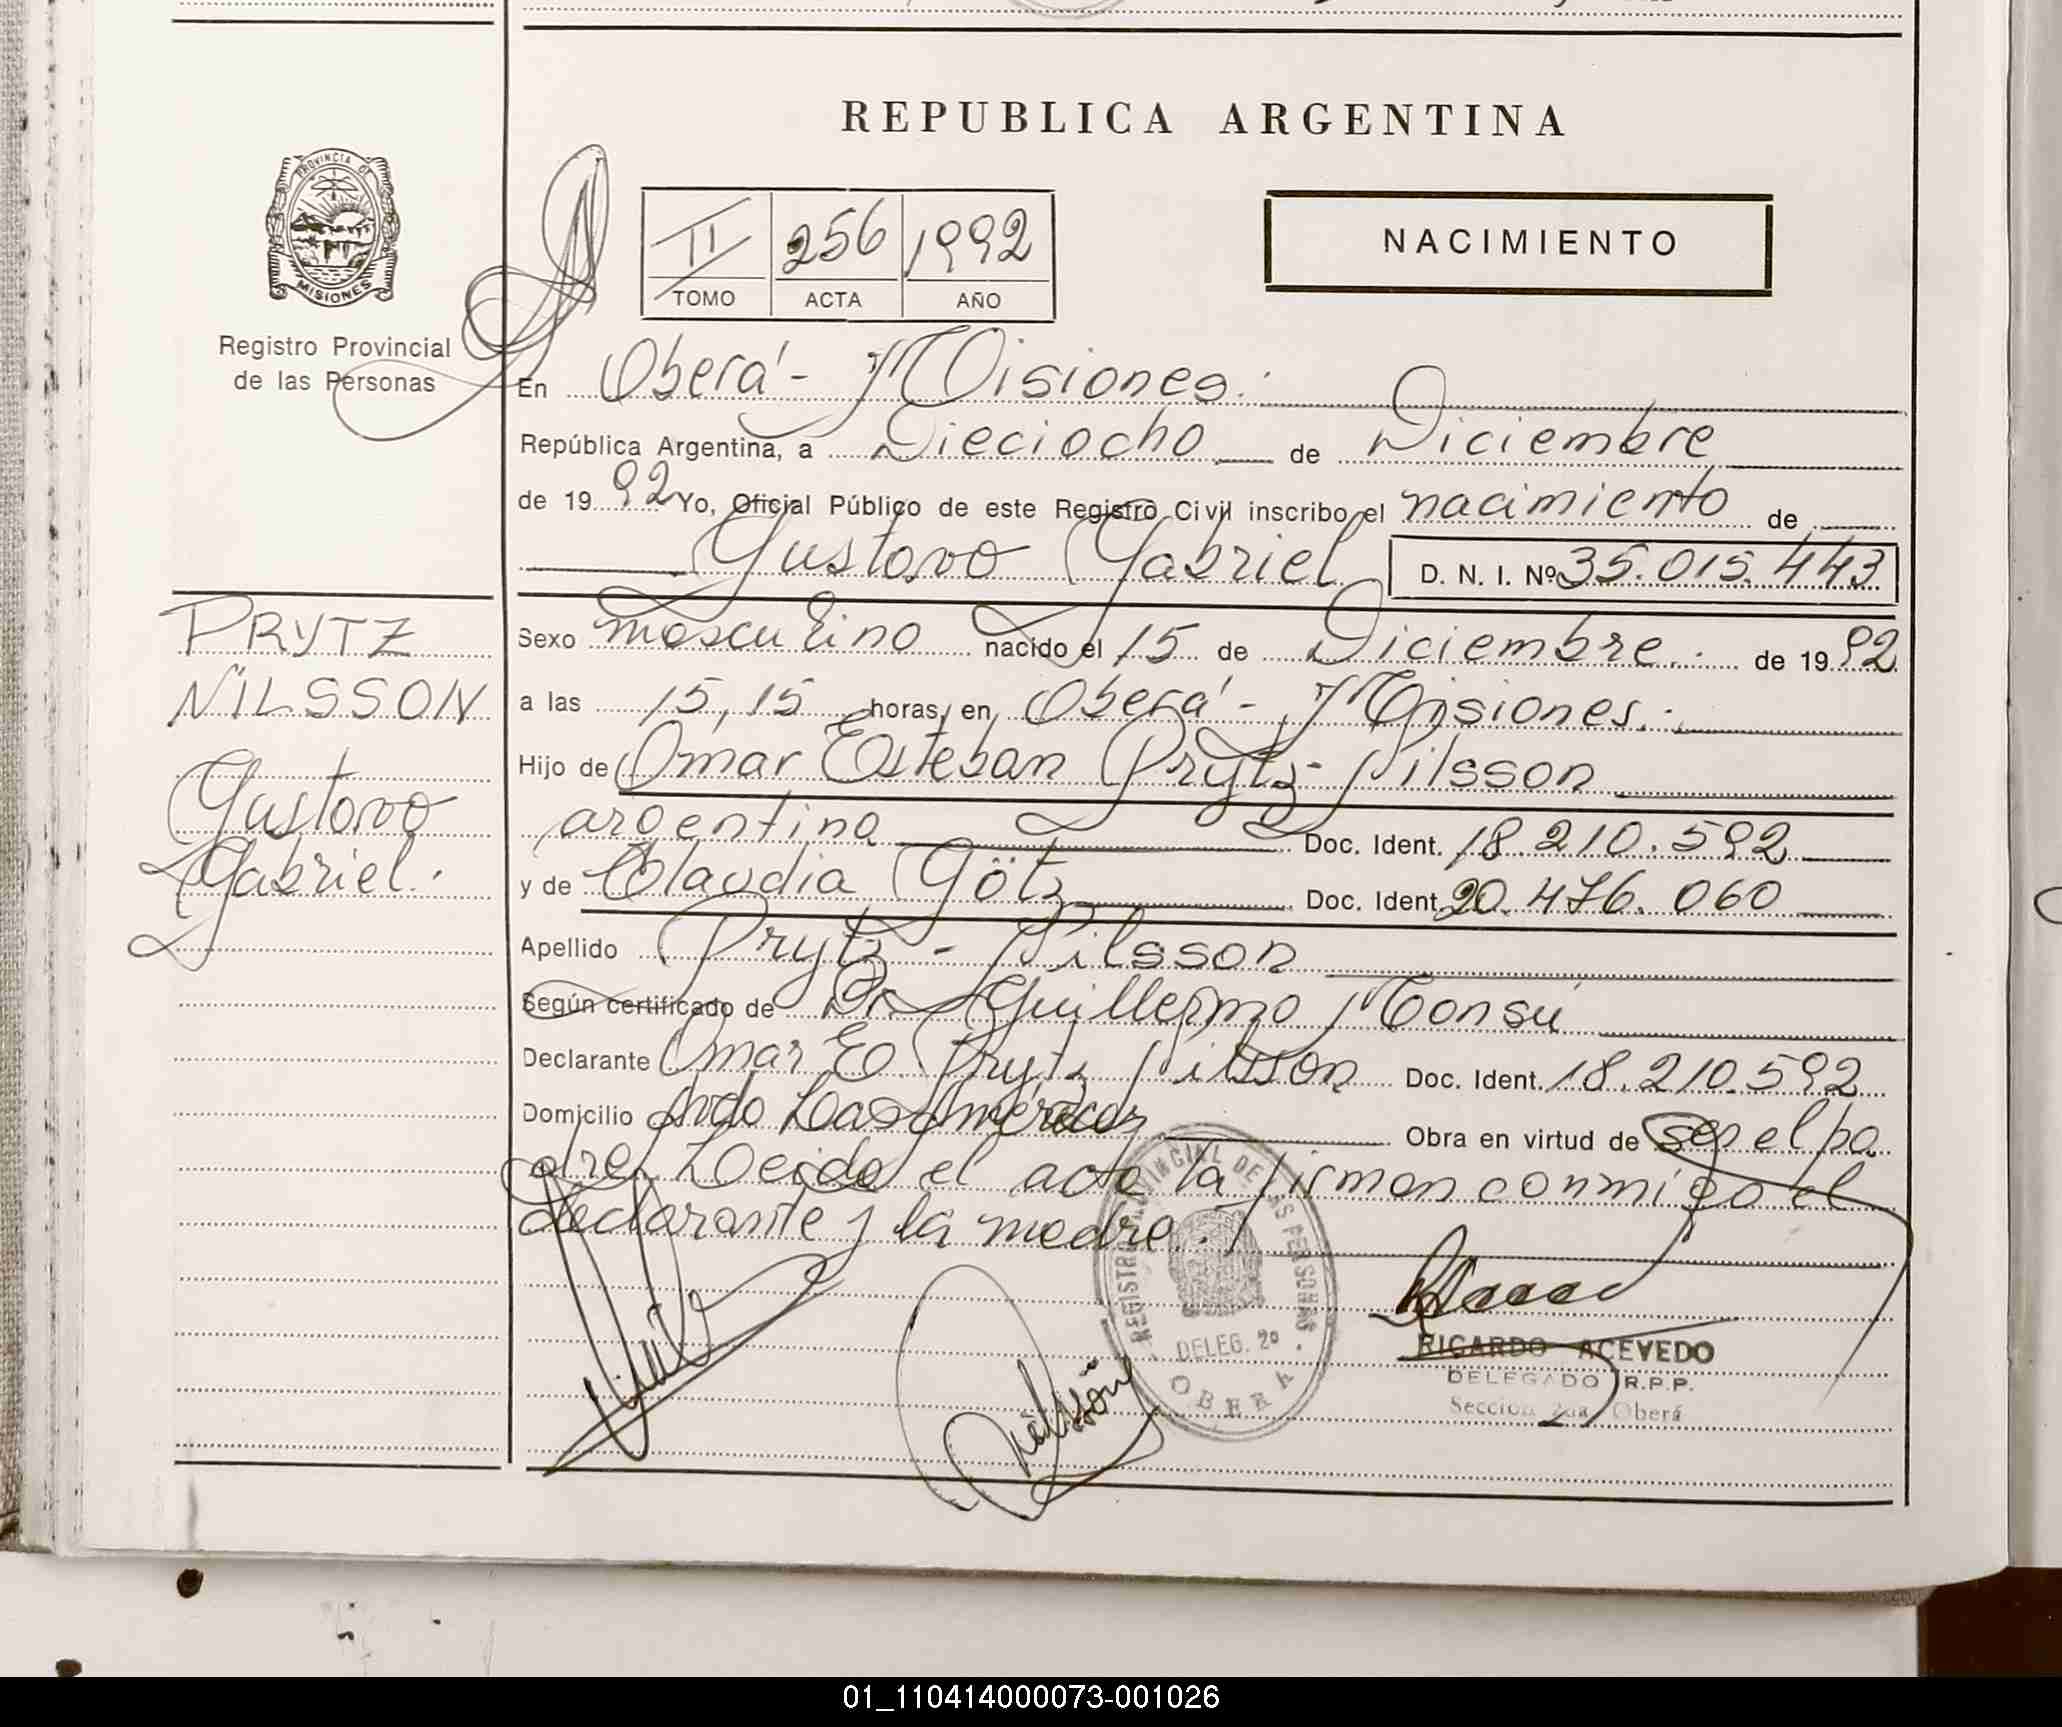 REPUBLICA ARGENTINA
PROVINCIA DE
MISIONES
Registro Provincial
de las Personas
II 256 1992
TOMO ACTA AÑO
NACIMIENTO
En Oberá - Misiones.
República Argentina, a Dieciocho de Diciembre
de 1992 Yo, Oficial Público de este Registro Civil inscribo el nacimiento de
Gustavo Gabriel D. N. I. Nº 35.015.443
PRYTZ
NILSSON
Gustavo
Gabriel.
Sexo masculino nacido el 15 de Diciembre. de 1992
a las 15,15 horas, en Oberá - Misiones.
Hijo de Omar Esteban Prytz - Nilsson
argentina Doc. Ident. 18.210.592
y de Claudia Götz Doc. Ident. 20.476.060
Apellido Prytz - Nilsson
Según certificado de Dr. Guillermo Monsú
Declarante Omar E Prytz Nilsson Doc. Ident. 18.210.592
Domicilio Avda Las Américas Obra en virtud de ser el pa
dre. Leida el acta la firman conmigo el
declarante y la madre.
REGISTRO PROVINCIAL DE LAS PERSONAS
DELEG. 2º
OBERA
Nilsson
RICARDO ACEVEDO
DELEGADO R.P.P.
Sección 2da Oberá
01_110414000073-001026